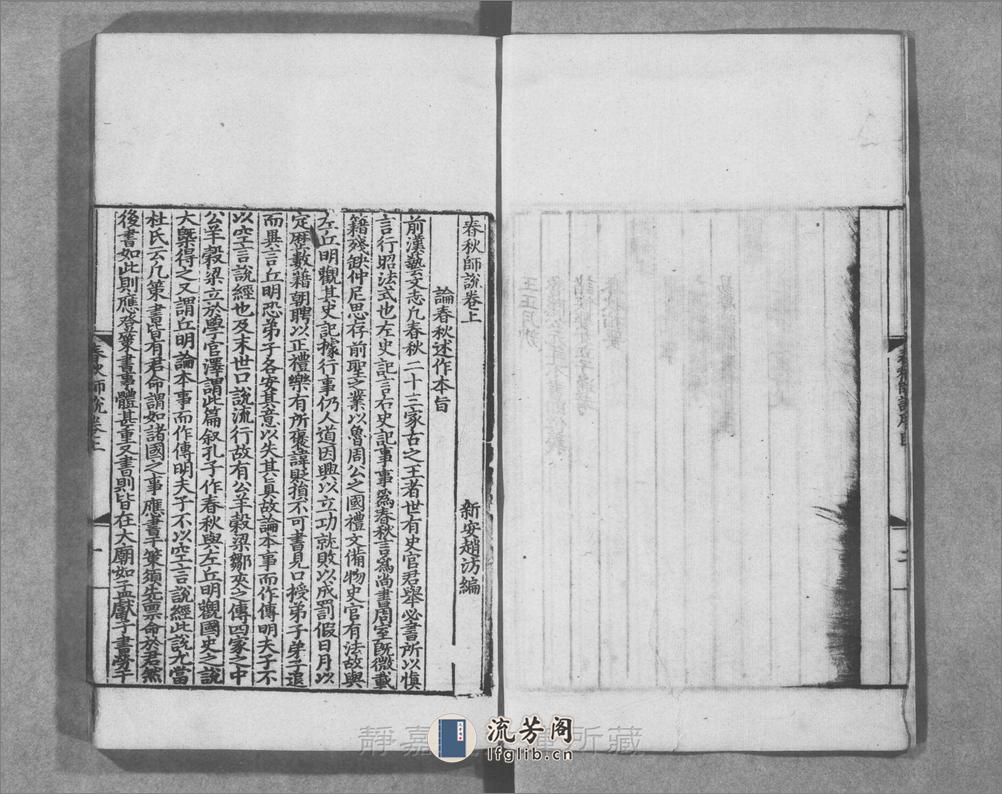 春秋師說卷上
新安趙汸編
論春秋述作本旨
前漢藝文志凡春秋二十三家古之王者世有史官君舉必書所以慎
言行昭法式也左史記言右史記事事為春秋言為尚書周室既微載
籍殘缺仲尼思存前聖之業以魯周公之國禮文備物史官有法故與
左丘明觀其史記據行事仍人道因興以立功就敗以成罰假日月以
定曆數藉朝聘以正禮樂有所褒諱貶損不可書見口授弟子弟子退
而異言丘明恐弟子各安其意以失其真故論本事而作傳明夫子不
以空言說經也及末世口說流行故有公羊穀梁鄒夾之傳四家之中
公羊穀梁立於學官澤謂此篇叙孔子作春秋與左丘明觀國史之說
大槩得之又謂丘明論本事而作傳明夫子不以空言說經此說尤當
杜氏云凡策書皆有君命謂如諸國之事應書于策須先稟命於君然
後書如此則應登策書事體甚重又書則皆在太廟如孟獻子書勞于
春秋師說卷上
一
流芳阁
lfglib.cn
靜嘉
所藏